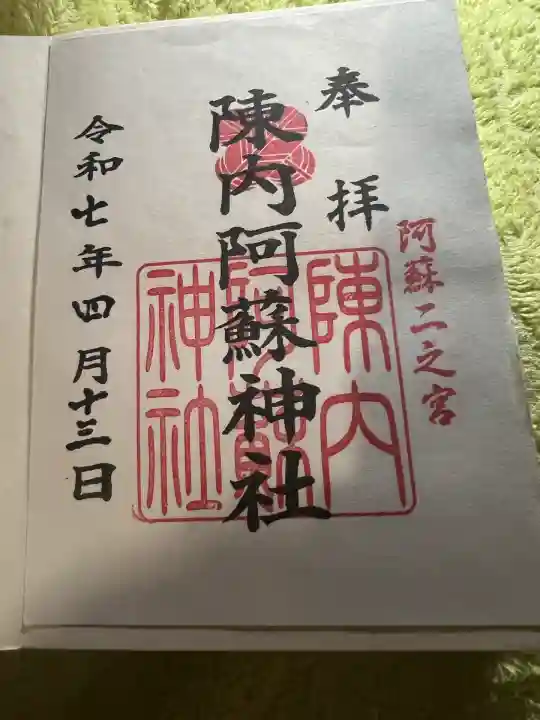 奉拝
阿蘇二之宮
陳内阿蘇神社
陳内
阿蘇
神社
令和七年四月十三日